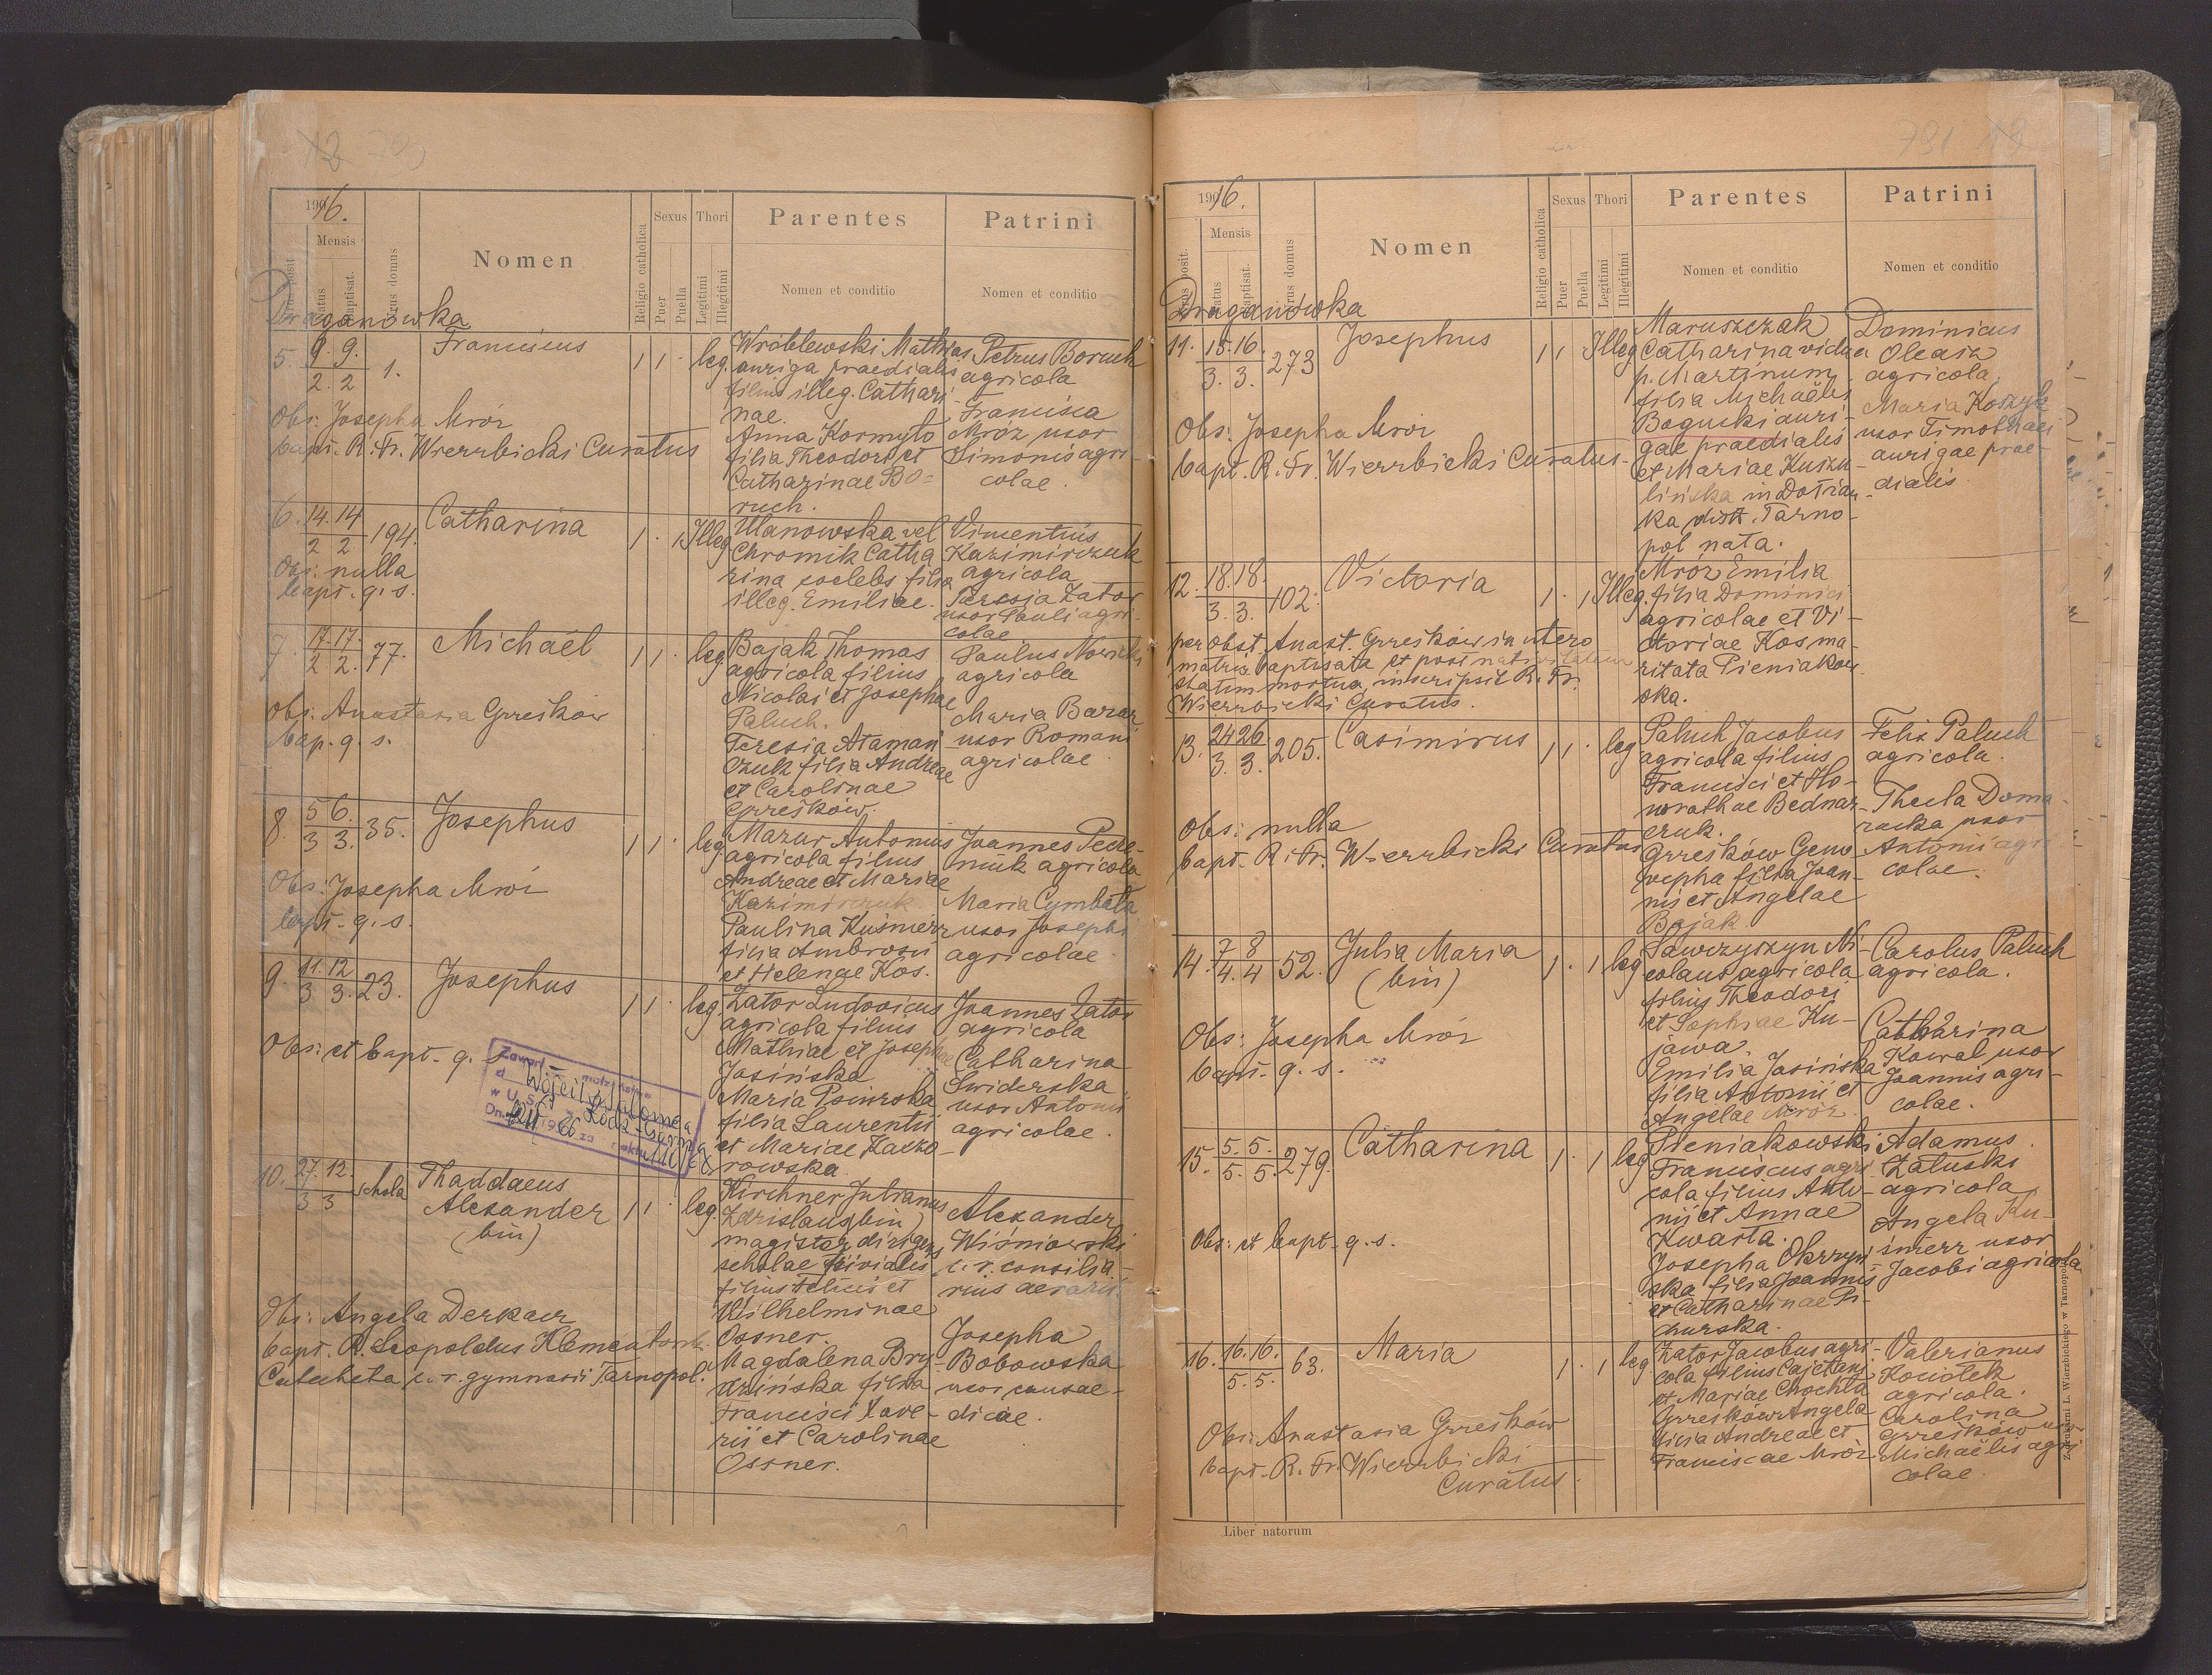 1916.
Mensis
Nrus posit.
Natus
Baptisat.
Nrus domus
Nomen
Religio catholica
Sexus
Puer
Puella
Thori
Legitimi
Illegitimi
Parentes
Nomen et conditio
Patrini
Nomen et conditio
Draganówka
5. 9. 9. 1. Franciscus 1 1 leg. Wróblewski Mathias Petrus Boruch
2. 2 auriga praedialis agricola
filius illeg. Cathari-
nae. Francisca
Obs: Josepha Mróz Anna Kormyło Mróz uxor
bapt. R. Fr. Wierzbicki Curatus filia Theodori et Simonis agri-
Catharinae Bo= colae.
ruch.
6. 14. 14 194. Catharina 1 . 1 Illeg Ulanowska vel Vincentius
2 2 Chromik Catha Kazimirczuk
Obs: nulla rina coelebs filia agricola
bapt. q. s. illeg. Emiliae. Zator
uxor Pauli agri-
colae
7. 17. 17. 77. Michaël 1 1 . leg. Bajak Thomas Paulus
2 2. agricola filius agricola
Nicolai et Josephae
Obs. Anastasia Grześków Paluch. Maria
bap. q. s. Teresia Ataman uxor Romani
czuk filia Andreae agricolae.
et Carolinae
Grześków.
8. 5 6. 35. Josephus 1 1 . leg Mazur Antonius Joannes
3 3. agricola filius agricola
Andreae et Mariae
Obs: Josepha Mróz Kazimirczuk Maria Cymbała
bapt. q. s. Paulina Kuśnierz uxor Josephi
filia Ambrosii agricolae.
et Helenae Kos.
9. 11. 12 23. Josephus 1 1 . leg. Zator Ludovicus Joannes Zator
3 3. agricola filius agricola
Mathiae et Josephae Catharina
Obs: et bapt. q. s. Jasińska Swiderska
Maria uxor Antonii
filia Laurentii agricolae.
et Mariae Kaczo-
rowska
10. 27. 12. schola Thaddaeus 1 1 . leg. Kirchner Julianus Alexander
3 3 Alexander Zdzislaus (bin) Wiśniowski
(bin) magister dirigens c. r. consilia-
scholae trivialis rius aerarii.
filius Felicis et
Obs: Angela Derkacz Wilhelminae
bapt. R. Leopoldus Ossner. Josepha
Catecheta c. r. gymnasii Tarnopol. Magdalena Bry- Bobowska
dzińska filia uxor causae-
Francisci Xave- dicae.
rii et Carolinae
Ossner.
1916.
Mensis
Nrus posit.
Natus
Baptisat.
Nrus domus
Nomen
Religio catholica
Sexus
Puer
Puella
Thori
Legitimi
Illegitimi
Parentes
Nomen et conditio
Patrini
Nomen et conditio
Draganówka
11. 15. 16. 273 Josephus 1 1 . Illeg Maruszczak Dominicus
3. 3. Catharina vidua Oleasz
p. Martinum agricola
filia Michaëlis
Obs: Josepha Mróz Bogucki auri- Maria Koszyk
bapt. R. Fr. Wierzbicki Curatus. gae praedialis uxor Timothaei
et Mariae Kuszu- aurigae prae-
lińska in dialis
ka distr. Tarno-
pol nata.
12. 18. 18. 102. Victoria 1 . 1 Illeg. Mróz Emilia
3. 3. filia Dominici
agricolae et Vi-
per obst. Anast. Grześków in utero ctoriae Kos ma-
matris baptisata et post nativitatem ritata Pieniakow
statim mortua, inscripsit R. Fr. ska.
Wierzbicki Curatus.
13. 24 26. 205. Casimirus 1 1 . leg Paluch Jacobus Felix Paluch
3. 3. agricola filius agricola.
Francisci et Ho-
norathae Bednar- Thecla Doma-
Obs: nulla czuk. racka uxor
bapt. R. Fr. Wierzbicki Curatus Grześków Geno- Antonii agri
vepha filia Joan- colae.
nis et Angelae
Bajak
14. 7 8 52. Julia Maria 1 . 1 leg Sawczyszyn Ni- Carolus Paluch
4. 4 (bin) colaus agricola agricola.
filius Theodori
et Sophiae Ku- Catharina
Obs: Josepha Mróz jawa. Kowal uxor
bapt. q. s. Emilia Jasińska Joannis agri-
filia Antonii et colae.
Angelae Mróz.
15. 5. 5. 279. Catharina 1 . 1 leg Pieniakowski Adamus
5. 5. Franciscus agri Załuski
cola filius Anto- agricola
nii et Annae Angela Ku-
Obs: et bapt. q. s. Kwarta. śnierz uxor
Josepha Jacobi agricola
ska filia Joannis
et Catharinae Pi-
churska.
16. 16. 16. 63. Maria 1 . 1 leg Zator Jacobus agri- Valerianus
5. 5. cola filius Cajetani
et Mariae Chochla agricola.
Grześków Angela Carolina
Obs: Anastasia Grześków filia Andreae et Grześków uxor
bapt. R. Fr. Wierzbicki Franciscae Mróz. Michaëlis agri
Curatus. colae.
Liber natorum
Z drukarni L. Wierzbickiego w Tarnopolu.